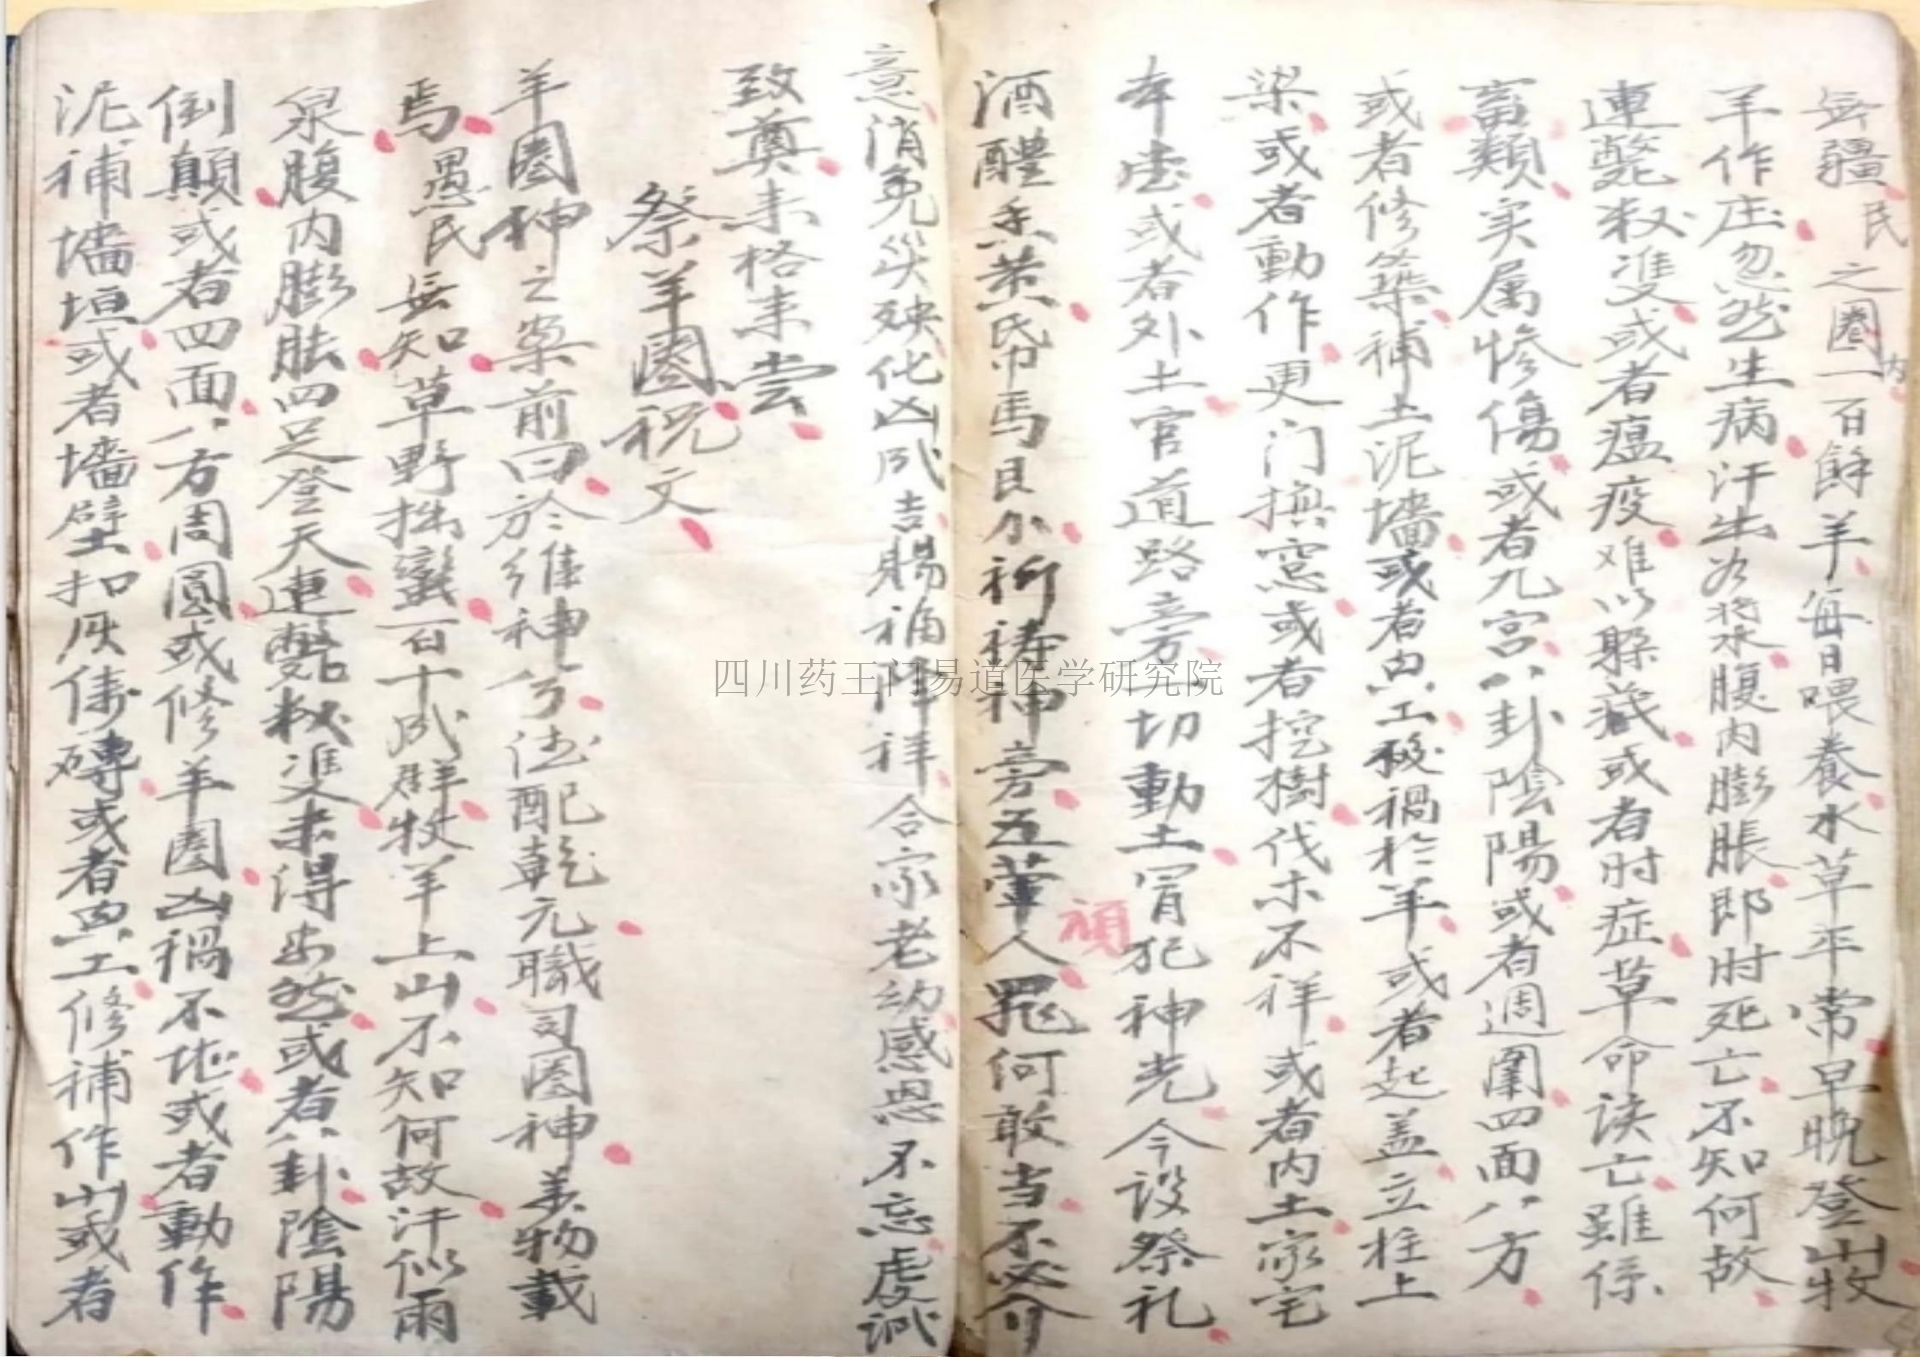 無疆民之圈内一百餘羊每日喂養水草平常早晚登山牧
羊作庄忽然生病汗出如水腹内膨脹即时死亡不知何故
連斃数隻或者瘟疫难以躲藏或者时症草命误亡雖係
畜類实属惨傷或者九宫八卦陰陽或者週圍四面八方
或者修築補土泥墙或者興工移禍於羊或者起盖立柱上
梁或者動作更门换窓或者挖樹伐木不祥或者内土家宅
本宅或者外土官道路旁一切動土冒犯神光今设祭礼
酒醴香蒸帛馬艮分祈祷神旁五葷人罪何敢当不必介
意消免災殃化凶成吉賜福降祥合家老幼感恩不忘虔诚
致奠来格来尝
祭羊圈祝文
羊圈神之案前曰於维神兮德配乾元職司圈神万物載
焉愚民無知草野拙蛮百十成群牧羊上山不知何故汗似雨
泉腹内膨胀四足登天連斃数隻未得安然或者八卦陰陽
倒顛或者四面八方周圓或修羊圈凶禍不地或者動作
泥補墙垣或者墙壁扣灰俻磚或者興工修補作山或者
禎
四川药王门易道医学研究院